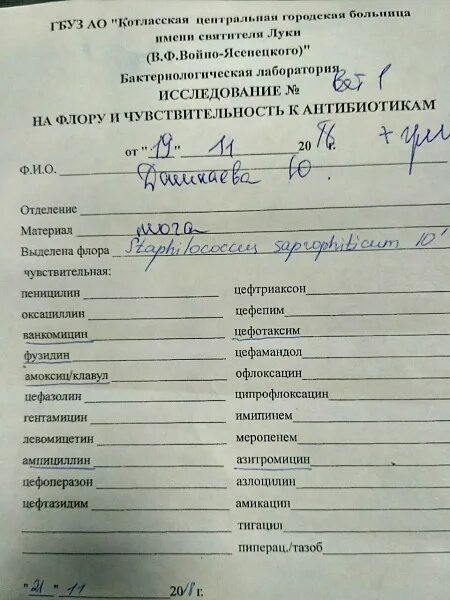 ГБУЗ АО "Котласская центральная городская больница
имени святителя Луки
(В.Ф.Войно-Ясенецкого)"
Бактернологическая лаборатория
ИССЛЕДОВАНИЕ №
НА ФЛОРУ И ЧУВСТВИТЕЛЬНОСТЬ К АНТИБИОТИКАМ
от "19" 11 20 г.
Ф.И.О. Ю.
Отделение
Материал моча
Выделена флора Staphilococcus saprophiticum 10
чувствительная:
пеницилин цефтриаксон
оксациллин цефепим
ванкомицин цефотаксим
фузидин цефамандол
амоксиц/клавул офлоксацин
цефазолин ципрофлоксацин
гентамицин имипинем
левомицетин меропенем
ампициллин азитромицин
цефоперазон азлоцилин
цефтазидим амикацин
тигацил
пиперац./тазоб
"21" 11 2018г.